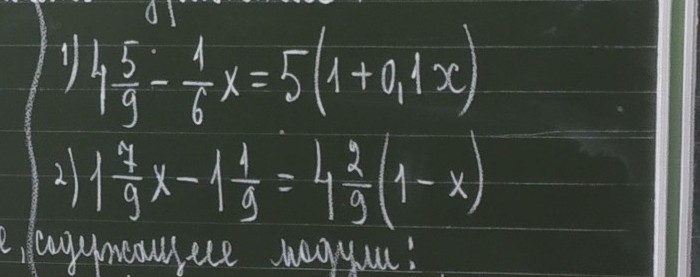 1) 4 5/9 - 1/6 x = 5(1+0,1x)
2) 1 7/9 x - 1 1/9 = 4 2/9 (1-x)
содержащее модули: